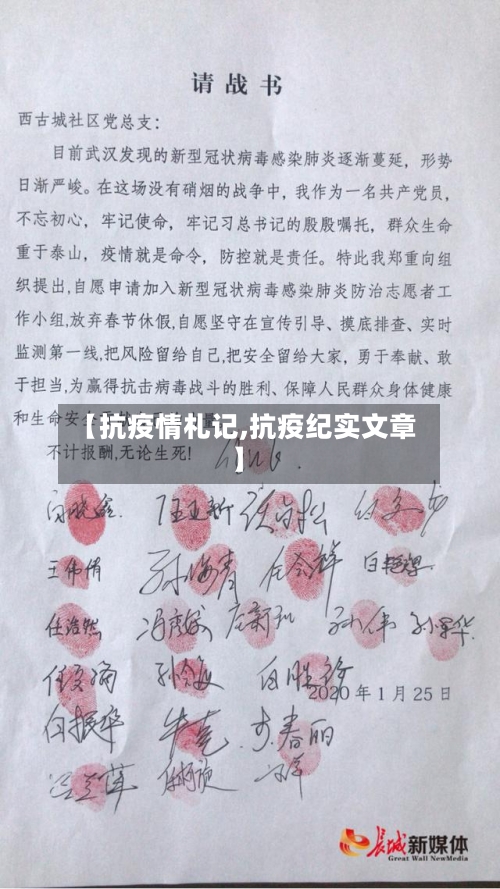 请战书
西古城社区党总支：
目前武汉发现的新型冠状病毒感染肺炎逐渐蔓延，形势
日渐严峻。在这场没有硝烟的战争中，我作为一名共产党员，
不忘初心，牢记使命，牢记习总书记的殷殷嘱托，群众生命
重于泰山，疫情就是命令，防控就是责任。特此我郑重向组
织提出,自愿申请加入新型冠状病毒感染肺炎防治志愿者工
作小组,放弃春节休假,自愿坚守在宣传引导、摸底排查、实时
监测第一线,把风险留给自己,把安全留给大家，勇于奉献、敢
于担当,为赢得抗击病毒战斗的胜利、保障人民群众身体健康
和生命安全
【抗疫情札记,抗疫纪实文章
】
不计报酬,无论生死!
王伟倩 孙海青 任会祥 白艳翠
任浩然 冯彦敏 孙伟
白振华 李春丽
2020年1月25日
长城新媒体
Great Wall NewMedia